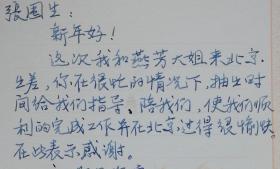 張国生：
新年好！
这次我和燕芳大姐来北京
出差，你在很忙的情况下，抽出时
间给我们指导、陪我们，使我们顺
利的完成工作并在北京，过得很愉快
在此表示，感谢。